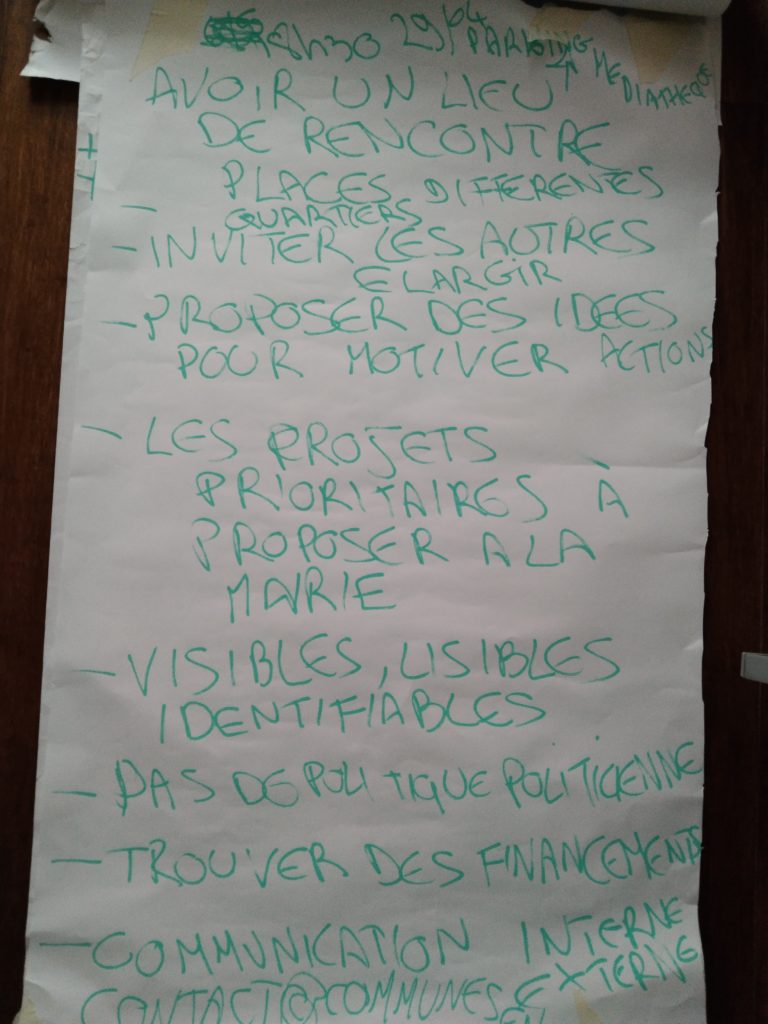 8h30 29/04 PARKING
↑ MEDIATHEQUE
AVOIR UN LIEU
DE RENCONTRE
- PLACES DIFFERENTES
QUARTIERS
- INVITER LES AUTRES
ELARGIR
- PROPOSER DES IDEES
POUR MOTIVER ACTIONS
- LES PROJETS
PRIORITAIRES À
PROPOSER A LA
MAIRIE
- VISIBLES, LISIBLES
IDENTIFIABLES
- PAS DE POLITIQUE POLITICIENNE
- TROUVER DES FINANCEMENTS
- COMMUNICATION INTERNE
EXTERNE
CONTACT@COMMUNES